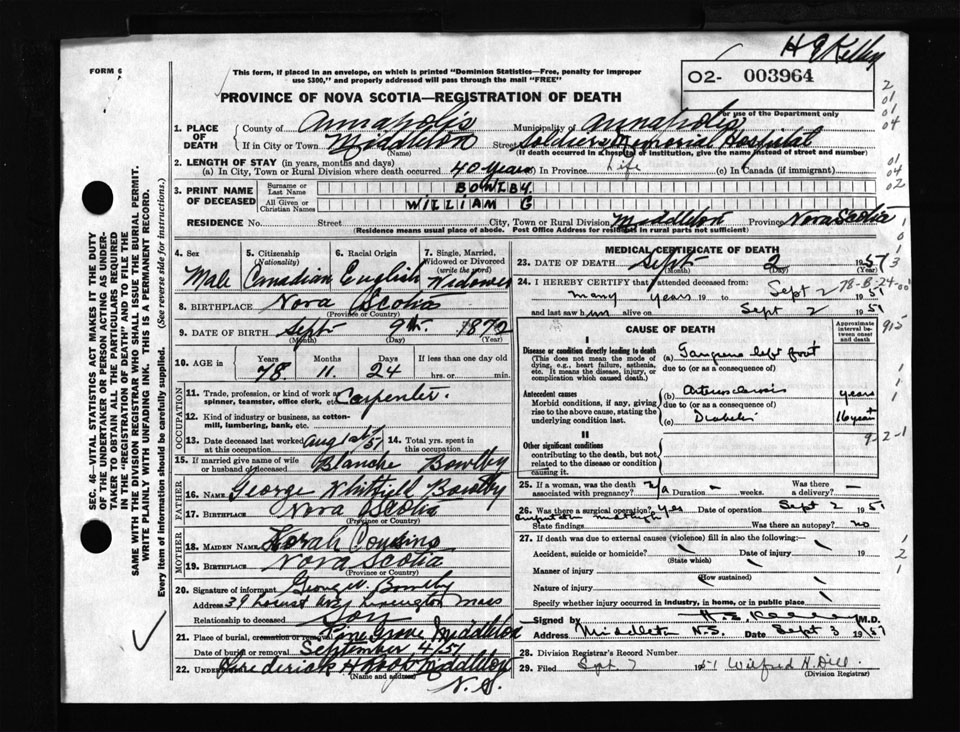 H E Kelley
FORM 6
This form, if placed in an envelope, on which is printed "Dominion Statistics—Free, penalty for improper
use $300," and properly addressed will pass through the mail "FREE"
02- 003964
For use of the Department only
PROVINCE OF NOVA SCOTIA—REGISTRATION OF DEATH
1. PLACE OF DEATH
County of Annapolis Municipality of Annapolis
If in City or Town Middleton Street Soldiers Memorial Hospital
(Name) (If death occurred in a hospital or institution, give the name instead of street and number)
2. LENGTH OF STAY (in years, months and days)
(a) In City, Town or Rural Division where death occurred 40 years In Province Life (c) In Canada (if immigrant)
3. PRINT NAME OF DECEASED
Surname or Last Name BOWLBY
All Given or Christian Names WILLIAM G
RESIDENCE No. Street City, Town or Rural Division Middleton Province Nova Scotia
(Residence means usual place of abode. Post Office Address for residents in rural parts not sufficient)
4. Sex Male
5. Citizenship (Nationality) Canadian
6. Racial Origin English
7. Single, Married, Widowed or Divorced (write the word) Widower
8. BIRTHPLACE Nova Scotia
(Province or Country)
9. DATE OF BIRTH Sept 9th 1872
(Month) (Day) (Year)
10. AGE in Years 78 Months 11 Days 24 If less than one day old hrs. or min.
OCCUPATION
11. Trade, profession, or kind of work as spinner, teamster, office clerk, etc. Carpenter
12. Kind of industry or business, as cotton-mill, lumbering, bank, etc.
13. Date deceased last worked at this occupation Aug 1st/51 14. Total yrs. spent in this occupation
15. If married give name of wife or husband of deceased Blanche Bowlby
FATHER
16. NAME George Bowlby
17. BIRTHPLACE Nova Scotia
(Province or Country)
MOTHER
18. MAIDEN NAME Sorah Cousins
19. BIRTHPLACE Nova Scotia
(Province or Country)
20. Signature of informant George W. Bowlby
Address 39 Locust Ave Lexington Mass
Relationship to deceased Son
21. Place of burial, cremation or removal Pine Grove Middleton
Date of burial or removal September 4/51
22. Undertaker Frederick H Middleton
(Name and address) N.S.
MEDICAL CERTIFICATE OF DEATH
23. DATE OF DEATH Sept 2 1951
(Month) (Day) (Year)
24. I HEREBY CERTIFY that I attended deceased from
many years 19 to Sept 2 1951
and last saw him alive on Sept 2 1951
CAUSE OF DEATH
Approximate interval between onset and death
I
Disease or condition directly leading to death
(This does not mean the mode of dying, e.g., heart failure, asthenia, etc. It means the disease, injury, or complication which caused death.)
(a) Gangrene left foot
due to (or as a consequence of)
Antecedent causes
Morbid conditions, if any, giving rise to the above cause, stating the underlying condition last.
(b) Arteriosclerosis years
due to (or as a consequence of)
(c) Diabetes 16 years
II
Other significant conditions
contributing to the death, but not related to the disease or condition causing it.
25. If a woman, was the death associated with pregnancy? n/a Duration weeks. Was there a delivery?
26. Was there a surgical operation? yes Date of operation Sept 2 1951
amputation midthigh
State findings Was there an autopsy? no
27. If death was due to external causes (violence) fill in also the following:—
Accident, suicide or homicide? Date of injury 19
(State which)
Manner of injury
(How sustained)
Nature of injury
Specify whether injury occurred in industry, in home, or in public place
Signed by H. E. Kelley M.D.
Address Middleton N.S. Date Sept 3 1951
28. Division Registrar's Record Number
29. Filed Sept. 7 1951 Wilfred H. Dill
(Division Registrar)
SEC. 46—VITAL STATISTICS ACT MAKES IT THE DUTY
OF THE UNDERTAKER OR PERSON ACTING AS UNDER-
TAKER TO OBTAIN ALL THE PARTICULARS REQUIRED
IN THE "REGISTRATION OF DEATH" AND TO FILE THE
SAME WITH THE DIVISION REGISTRAR WHO SHALL ISSUE THE BURIAL PERMIT.
WRITE PLAINLY WITH UNFADING INK. THIS IS A PERMANENT RECORD.
Every item of information should be carefully supplied. (See reverse side for instructions.)